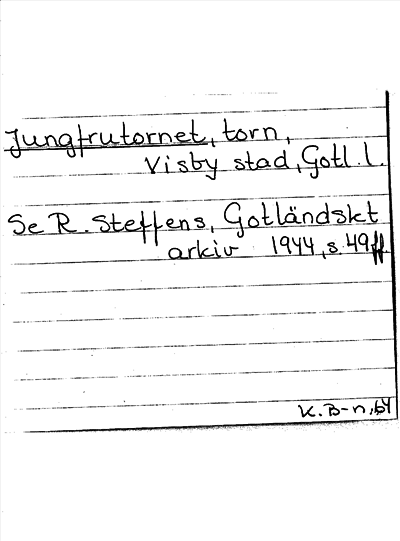 Jungfrutornet, torn,
Visby stad, Gotl. l.
Se R. Steffens, Gotländskt
arkiv 1944, s. 49 ff
K. B-n, 64